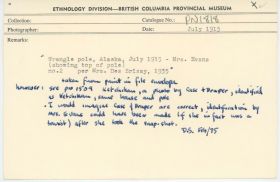 ETHNOLOGY DIVISION—BRITISH COLUMBIA PROVINCIAL MUSEUM
Collection: Catalogue No.: PN1818
Photographer: Date: July 1915
Remarks:
Wrangle pole, Alaska, July 1915 - Mrs. Evans
(showing top of pole)
no.2 per Mrs. Des Brisay, 1935
taken from print in file envelope
however: see PN 1509 Ketchikan, a photo by Case & Draper, identified
as Ketchikan, same house and pole
- I would imagine Case & Draper are correct, identification by
Mrs. Evans could have been made (if she in fact was a
tourist) after she took the snap-shot.
D.S. Feb/85